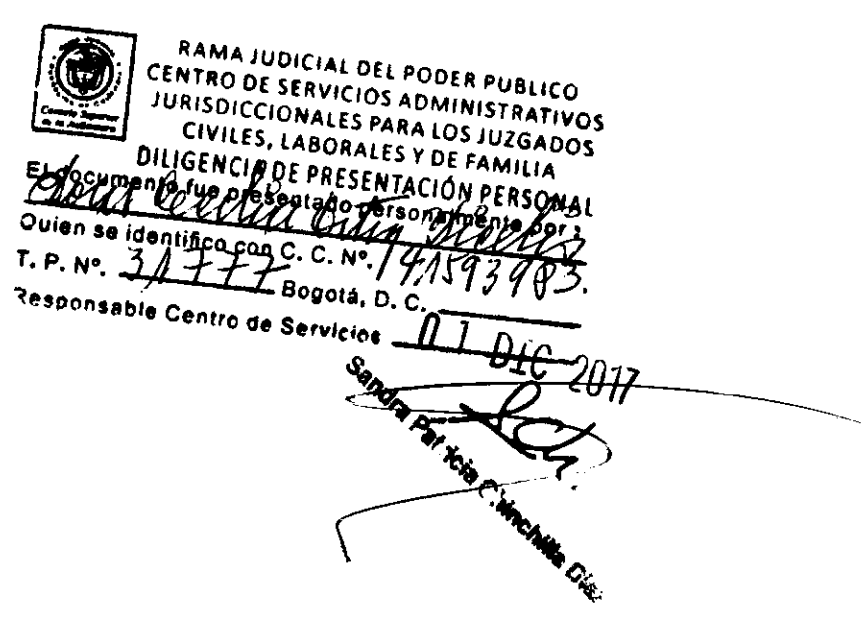 Consejo Superior
de la Judicatura
RAMA JUDICIAL DEL PODER PUBLICO
CENTRO DE SERVICIOS ADMINISTRATIVOS
JURISDICCIONALES PARA LOS JUZGADOS
CIVILES, LABORALES Y DE FAMILIA
DILIGENCIA DE PRESENTACIÓN PERSONAL
El documento fue presentado personalmente por:
Quien se identifico con C. C. Nº.
T. P. Nº. 31777 Bogotá, D. C.
Responsable Centro de Servicios
01 DIC 2017
Sandra Patricia Chinchilla Diaz